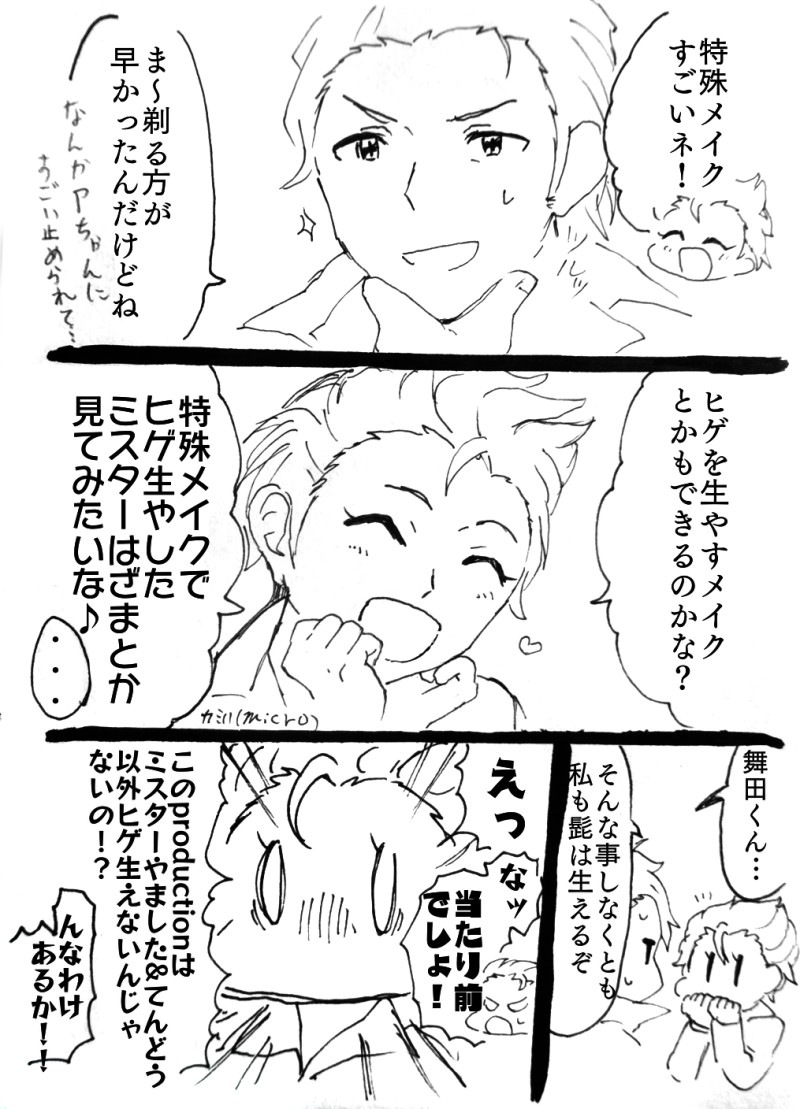 特殊メイク
すごいネ！
ま～剃る方が
早かったんだけどね
なんかPちゃんに
すごい止められて…
ヒゲを生やすメイク
とかもできるのかな？
特殊メイクで
ヒゲ生やした
ミスターはざまとか
見てみたいな♪
・・・
カミハ(micro)
舞田くん…
そんな事しなくとも
私も髭は生えるぞ
えっ
なッ
当たり前
でしょ！
このproductionは
ミスターやました&てんどう
以外ヒゲ生えないんじゃ
ないの！？
んなわけ
あるか！！